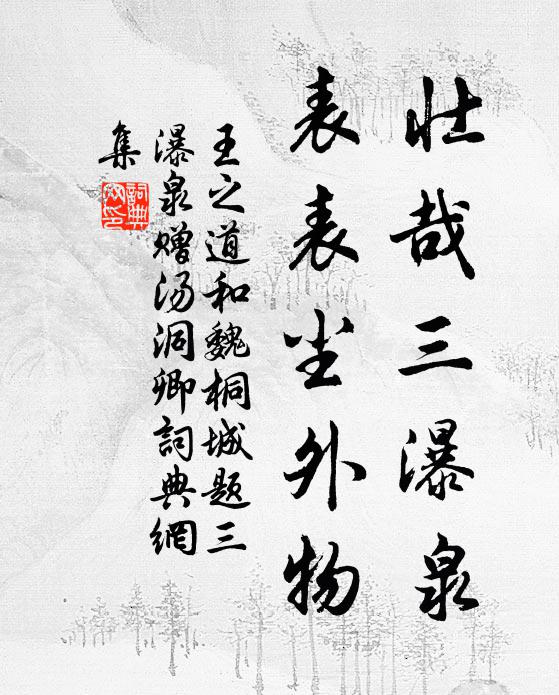 壮哉三瀑泉
表表尘外物
王之道和魏桐城题三
瀑泉赠汤洞卿詞典網
集
詞典
网印